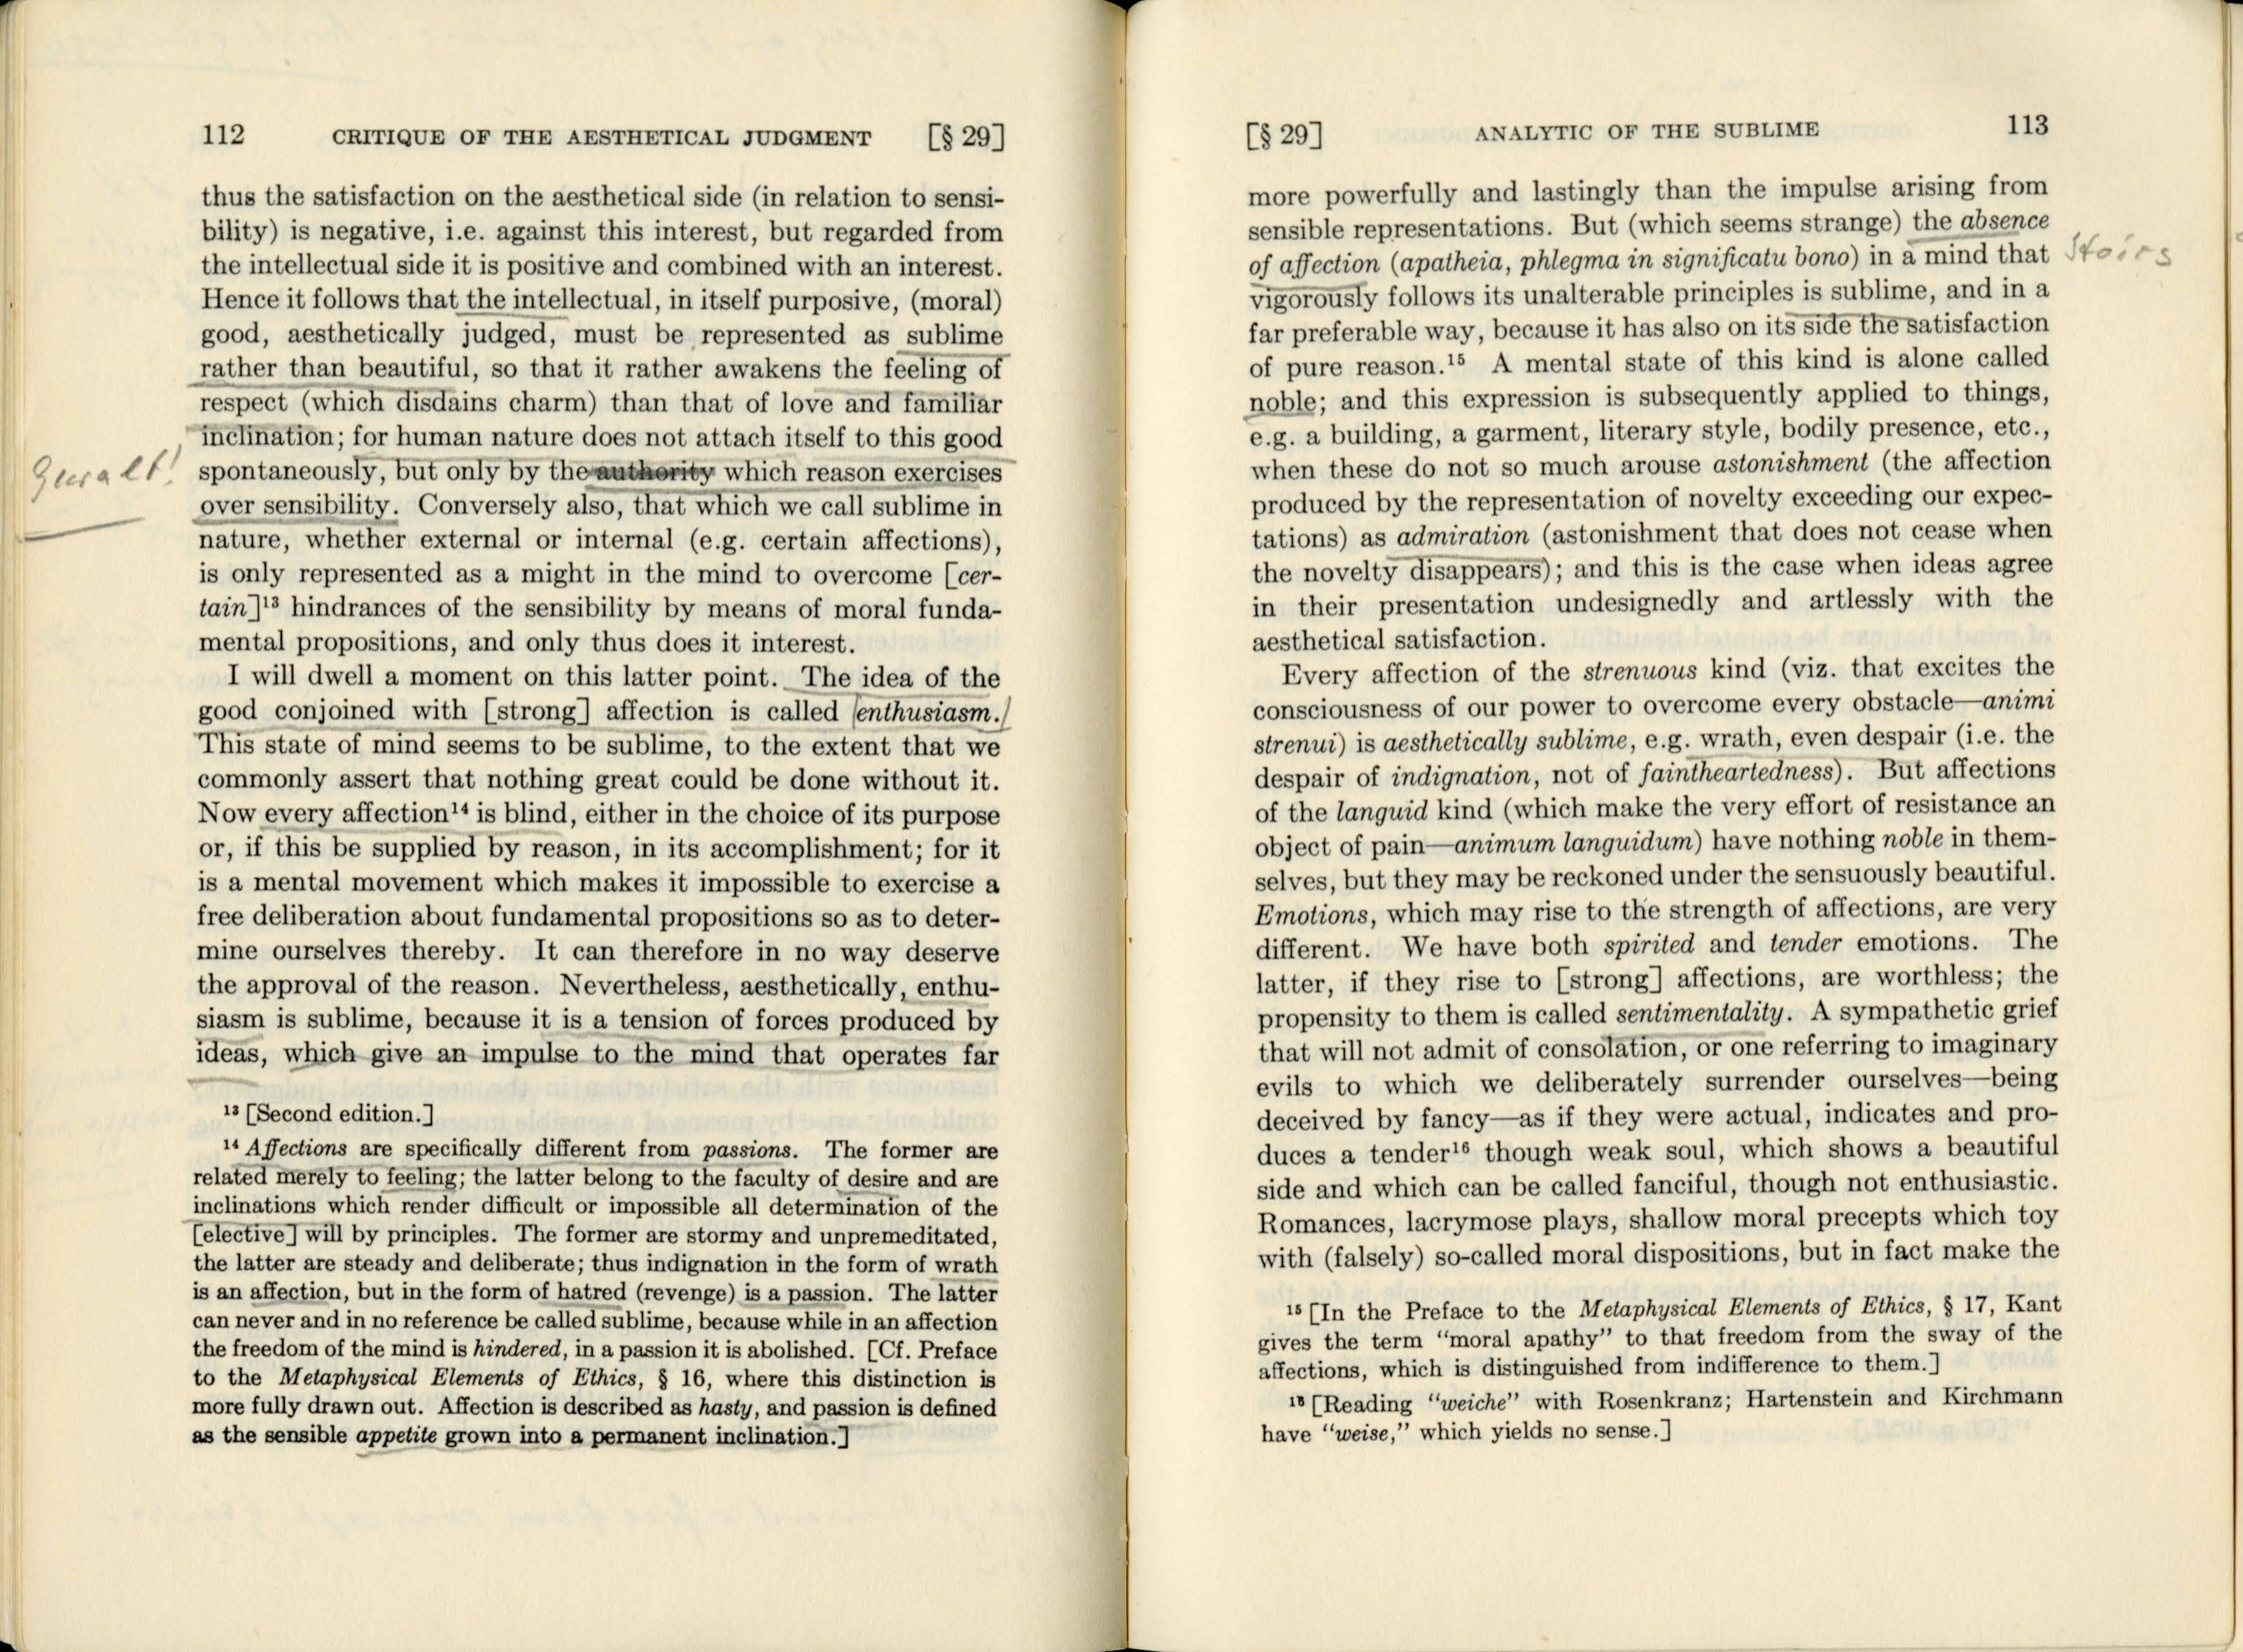 112 CRITIQUE OF THE AESTHETICAL JUDGMENT [§ 29]
thus the satisfaction on the aesthetical side (in relation to sensi-
bility) is negative, i.e. against this interest, but regarded from
the intellectual side it is positive and combined with an interest.
Hence it follows that the intellectual, in itself purposive, (moral)
good, aesthetically judged, must be represented as sublime
rather than beautiful, so that it rather awakens the feeling of
respect (which disdains charm) than that of love and familiar
inclination; for human nature does not attach itself to this good
Gewalt!
spontaneously, but only by the authority which reason exercises
over sensibility. Conversely also, that which we call sublime in
nature, whether external or internal (e.g. certain affections),
is only represented as a might in the mind to overcome [cer-
tain]¹³ hindrances of the sensibility by means of moral funda-
mental propositions, and only thus does it interest.
I will dwell a moment on this latter point. The idea of the
good conjoined with [strong] affection is called enthusiasm.
This state of mind seems to be sublime, to the extent that we
commonly assert that nothing great could be done without it.
Now every affection¹⁴ is blind, either in the choice of its purpose
or, if this be supplied by reason, in its accomplishment; for it
is a mental movement which makes it impossible to exercise a
free deliberation about fundamental propositions so as to deter-
mine ourselves thereby. It can therefore in no way deserve
the approval of the reason. Nevertheless, aesthetically, enthu-
siasm is sublime, because it is a tension of forces produced by
ideas, which give an impulse to the mind that operates far
¹³ [Second edition.]
¹⁴ Affections are specifically different from passions. The former are
related merely to feeling; the latter belong to the faculty of desire and are
inclinations which render difficult or impossible all determination of the
[elective] will by principles. The former are stormy and unpremeditated,
the latter are steady and deliberate; thus indignation in the form of wrath
is an affection, but in the form of hatred (revenge) is a passion. The latter
can never and in no reference be called sublime, because while in an affection
the freedom of the mind is hindered, in a passion it is abolished. [Cf. Preface
to the Metaphysical Elements of Ethics, § 16, where this distinction is
more fully drawn out. Affection is described as hasty, and passion is defined
as the sensible appetite grown into a permanent inclination.]
[§ 29] ANALYTIC OF THE SUBLIME 113
more powerfully and lastingly than the impulse arising from
sensible representations. But (which seems strange) the absence
of affection (apatheia, phlegma in significatu bono) in a mind that
Stoics
vigorously follows its unalterable principles is sublime, and in a
far preferable way, because it has also on its side the satisfaction
of pure reason.¹⁵ A mental state of this kind is alone called
noble; and this expression is subsequently applied to things,
e.g. a building, a garment, literary style, bodily presence, etc.,
when these do not so much arouse astonishment (the affection
produced by the representation of novelty exceeding our expec-
tations) as admiration (astonishment that does not cease when
the novelty disappears); and this is the case when ideas agree
in their presentation undesignedly and artlessly with the
aesthetical satisfaction.
Every affection of the strenuous kind (viz. that excites the
consciousness of our power to overcome every obstacle—animi
strenui) is aesthetically sublime, e.g. wrath, even despair (i.e. the
despair of indignation, not of faintheartedness). But affections
of the languid kind (which make the very effort of resistance an
object of pain—animum languidum) have nothing noble in them-
selves, but they may be reckoned under the sensuously beautiful.
Emotions, which may rise to the strength of affections, are very
different. We have both spirited and tender emotions. The
latter, if they rise to [strong] affections, are worthless; the
propensity to them is called sentimentality. A sympathetic grief
that will not admit of consolation, or one referring to imaginary
evils to which we deliberately surrender ourselves—being
deceived by fancy—as if they were actual, indicates and pro-
duces a tender¹⁶ though weak soul, which shows a beautiful
side and which can be called fanciful, though not enthusiastic.
Romances, lacrymose plays, shallow moral precepts which toy
with (falsely) so-called moral dispositions, but in fact make the
¹⁵ [In the Preface to the Metaphysical Elements of Ethics, § 17, Kant
gives the term "moral apathy" to that freedom from the sway of the
affections, which is distinguished from indifference to them.]
¹⁶ [Reading "weiche" with Rosenkranz; Hartenstein and Kirchmann
have "weise," which yields no sense.]